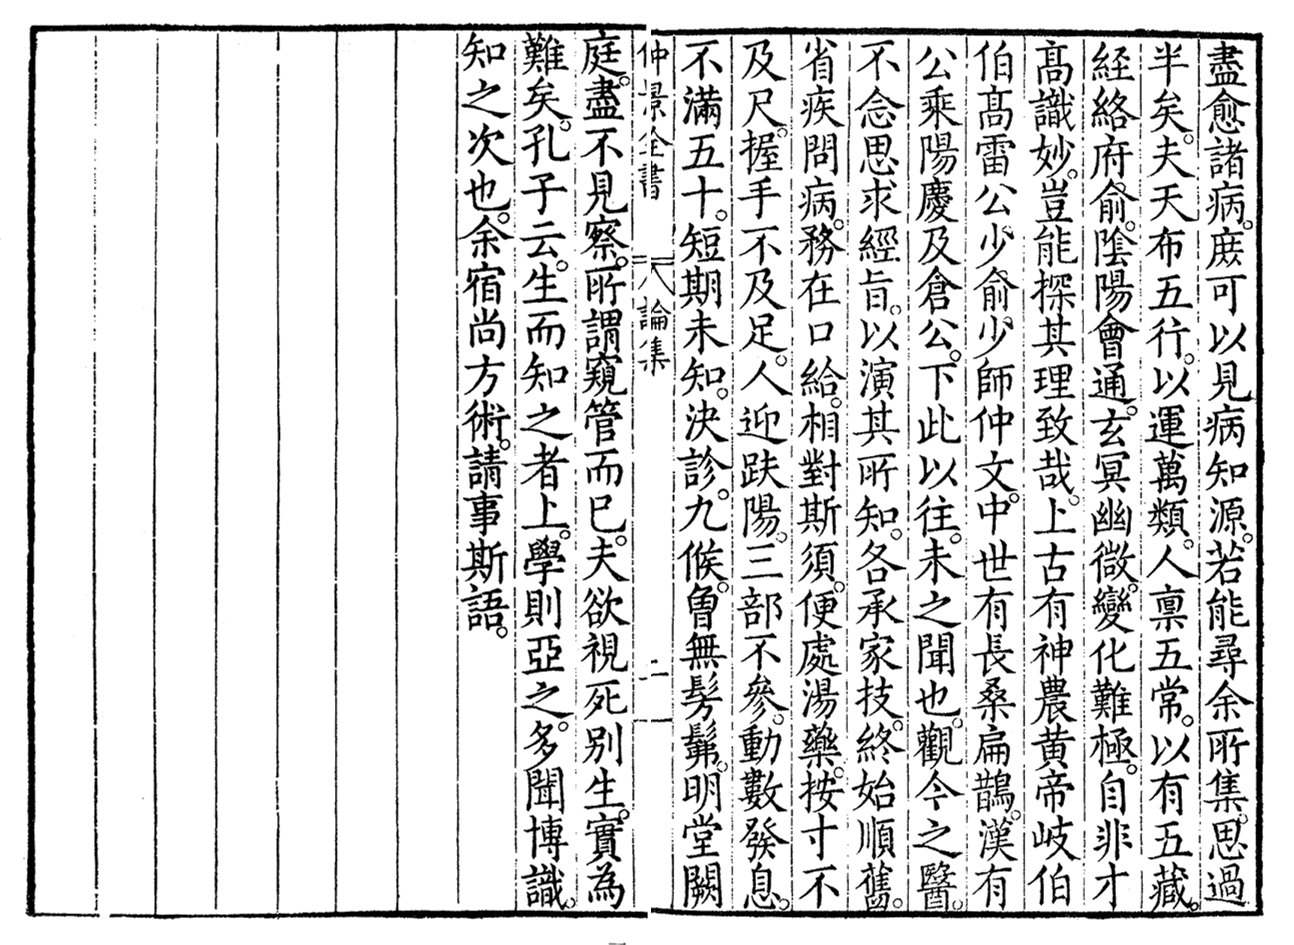 盡愈諸病。庶可以見病知源。若能尋余所集。思過
半矣。夫天布五行。以運萬類。人稟五常。以有五藏。
経絡府俞。陰陽會通。玄冥幽微。變化難極。自非才
髙識妙。豈能探其理致哉。上古有神農黄帝岐伯
伯髙雷公少俞少師仲文。中世有長桑扁鵲。漢有
公乘陽慶及倉公。下此以往。未之聞也。觀今之醫。
不念思求經旨。以演其所知。各承家技。終始順舊。
省疾問病。務在口給。相對斯須。便處湯藥。按寸不
及尺。握手不及足。人迎趺陽。三部不參。動數發息。
不滿五十。短期未知。決診。九候。曾無髣髴。明堂闕
仲景全書 論集 二
庭。盡不見察。所謂窺管而已。夫欲視死别生。實為
難矣。孔子云。生而知之者上。學則亞之。多聞博識。
知之次也。余宿尚方術。請事斯語。